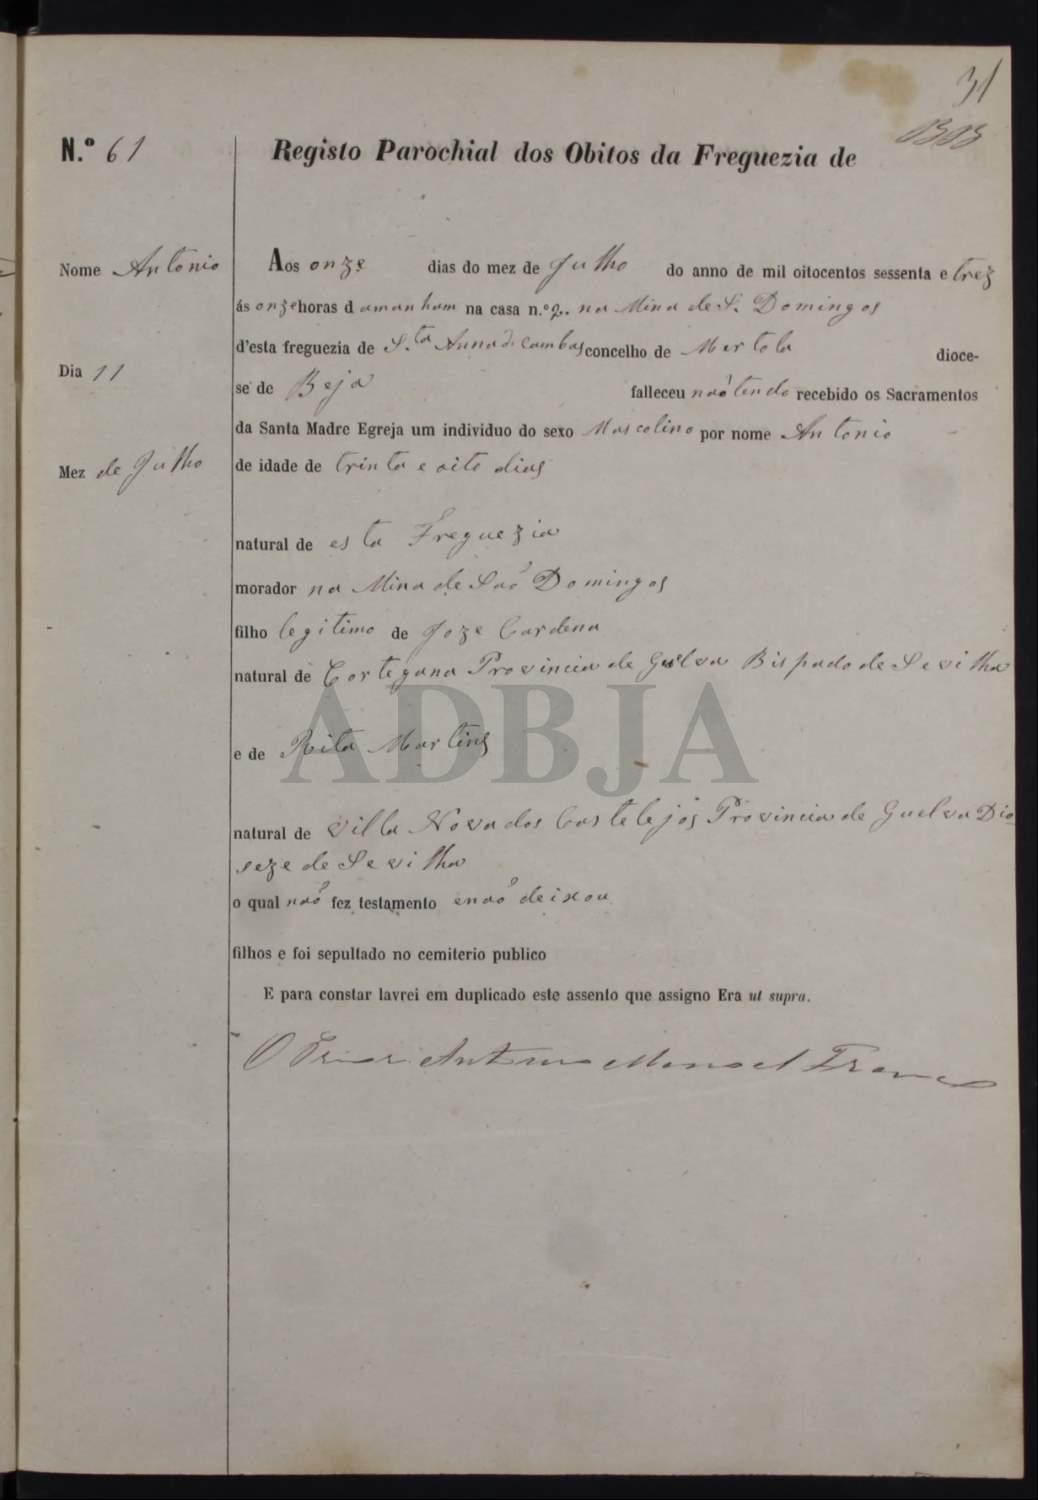 31
N.º 61
Registo Parochial dos Obitos da Freguezia de
Nome Antonio
Dia 11
Mez de Julho
Aos onze dias do mez de Julho do anno de mil oitocentos sessenta e trez
ás onze horas d amanham na casa n.º 2. na Mina de S. Domingos
d'esta freguezia de S.ta Anna de Cambas concelho de Mertola dioce-
se de Beja falleceu naõ tendo recebido os Sacramentos
da Santa Madre Egreja um individuo do sexo Mascolino por nome Antonio
de idade de trinta e oito dias
natural de esta Freguezia
morador na Mina de Saõ Domingos
filho legitimo de Joze Cardena
natural de Cortegana Provincia de Guelva Bispado de Sevilha
e de Rita Martins
natural de Villa Nova dos Castelejos Provincia de Guelva Dio-
seze de Sevilha
o qual naõ fez testamento e naõ deixou
filhos e foi sepultado no cemiterio publico
E para constar lavrei em duplicado este assento que assigno Era ut supra.
O Prior Antonio Manoel Franco
ADBJA